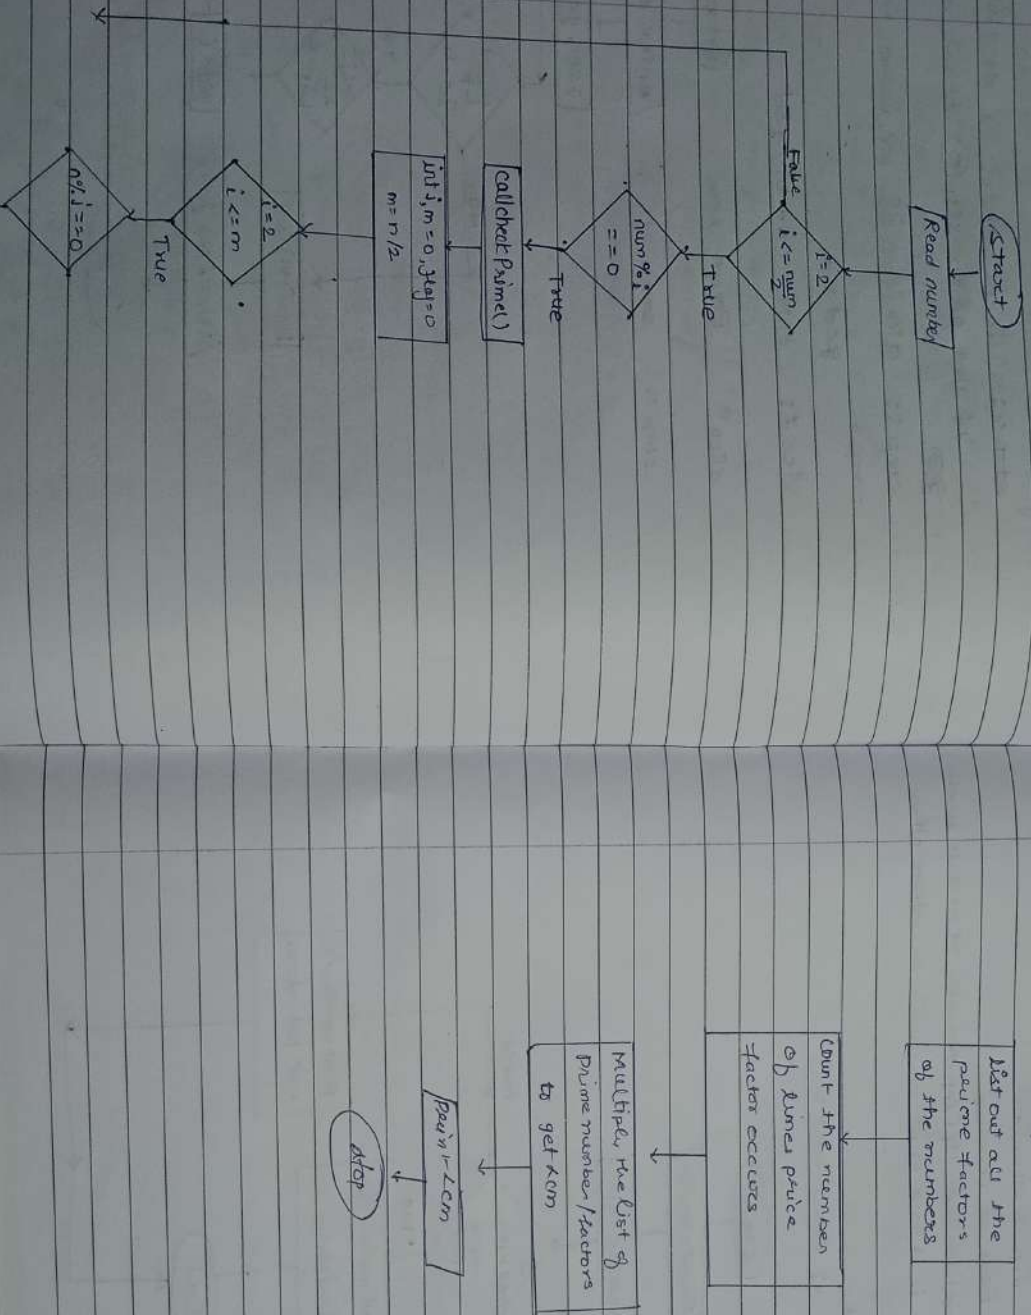 Start
Read number
i=2
i<=num/2
False
True
num%i
==0
True
callcheckPrime()
int i, m=0, flag=0
m=n/2
i=2
i<=m
True
n%i==0
List out all the
prime factors
of the numbers
count the number
of times price
factor occurs
Multiply the list of
prime number/factors
to get Lcm
Print Lcm
stop